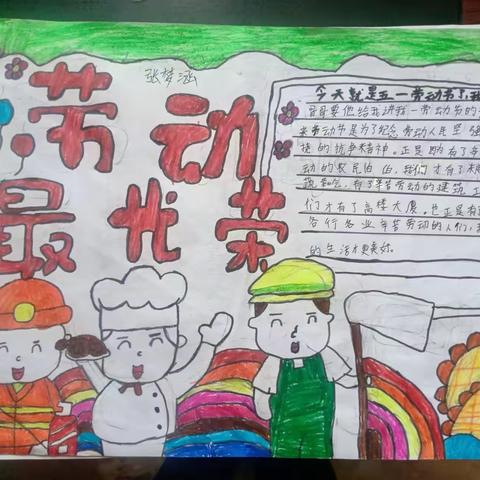 张梦涵
劳动
最光荣
今天就是五一劳动节了,我
哥哥要他给我讲
劳动节是为了纪念劳动人民坚强
的抗争精神。正是因为有了辛
动的农民伯伯,我们才有了
有了辛苦劳动的建筑工
们才有了高楼大厦,也正是有
各行各业辛苦劳动的人们,
的生活才更美好。